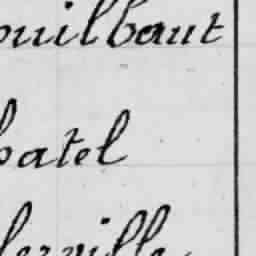 ouilbaut
batel
lerville